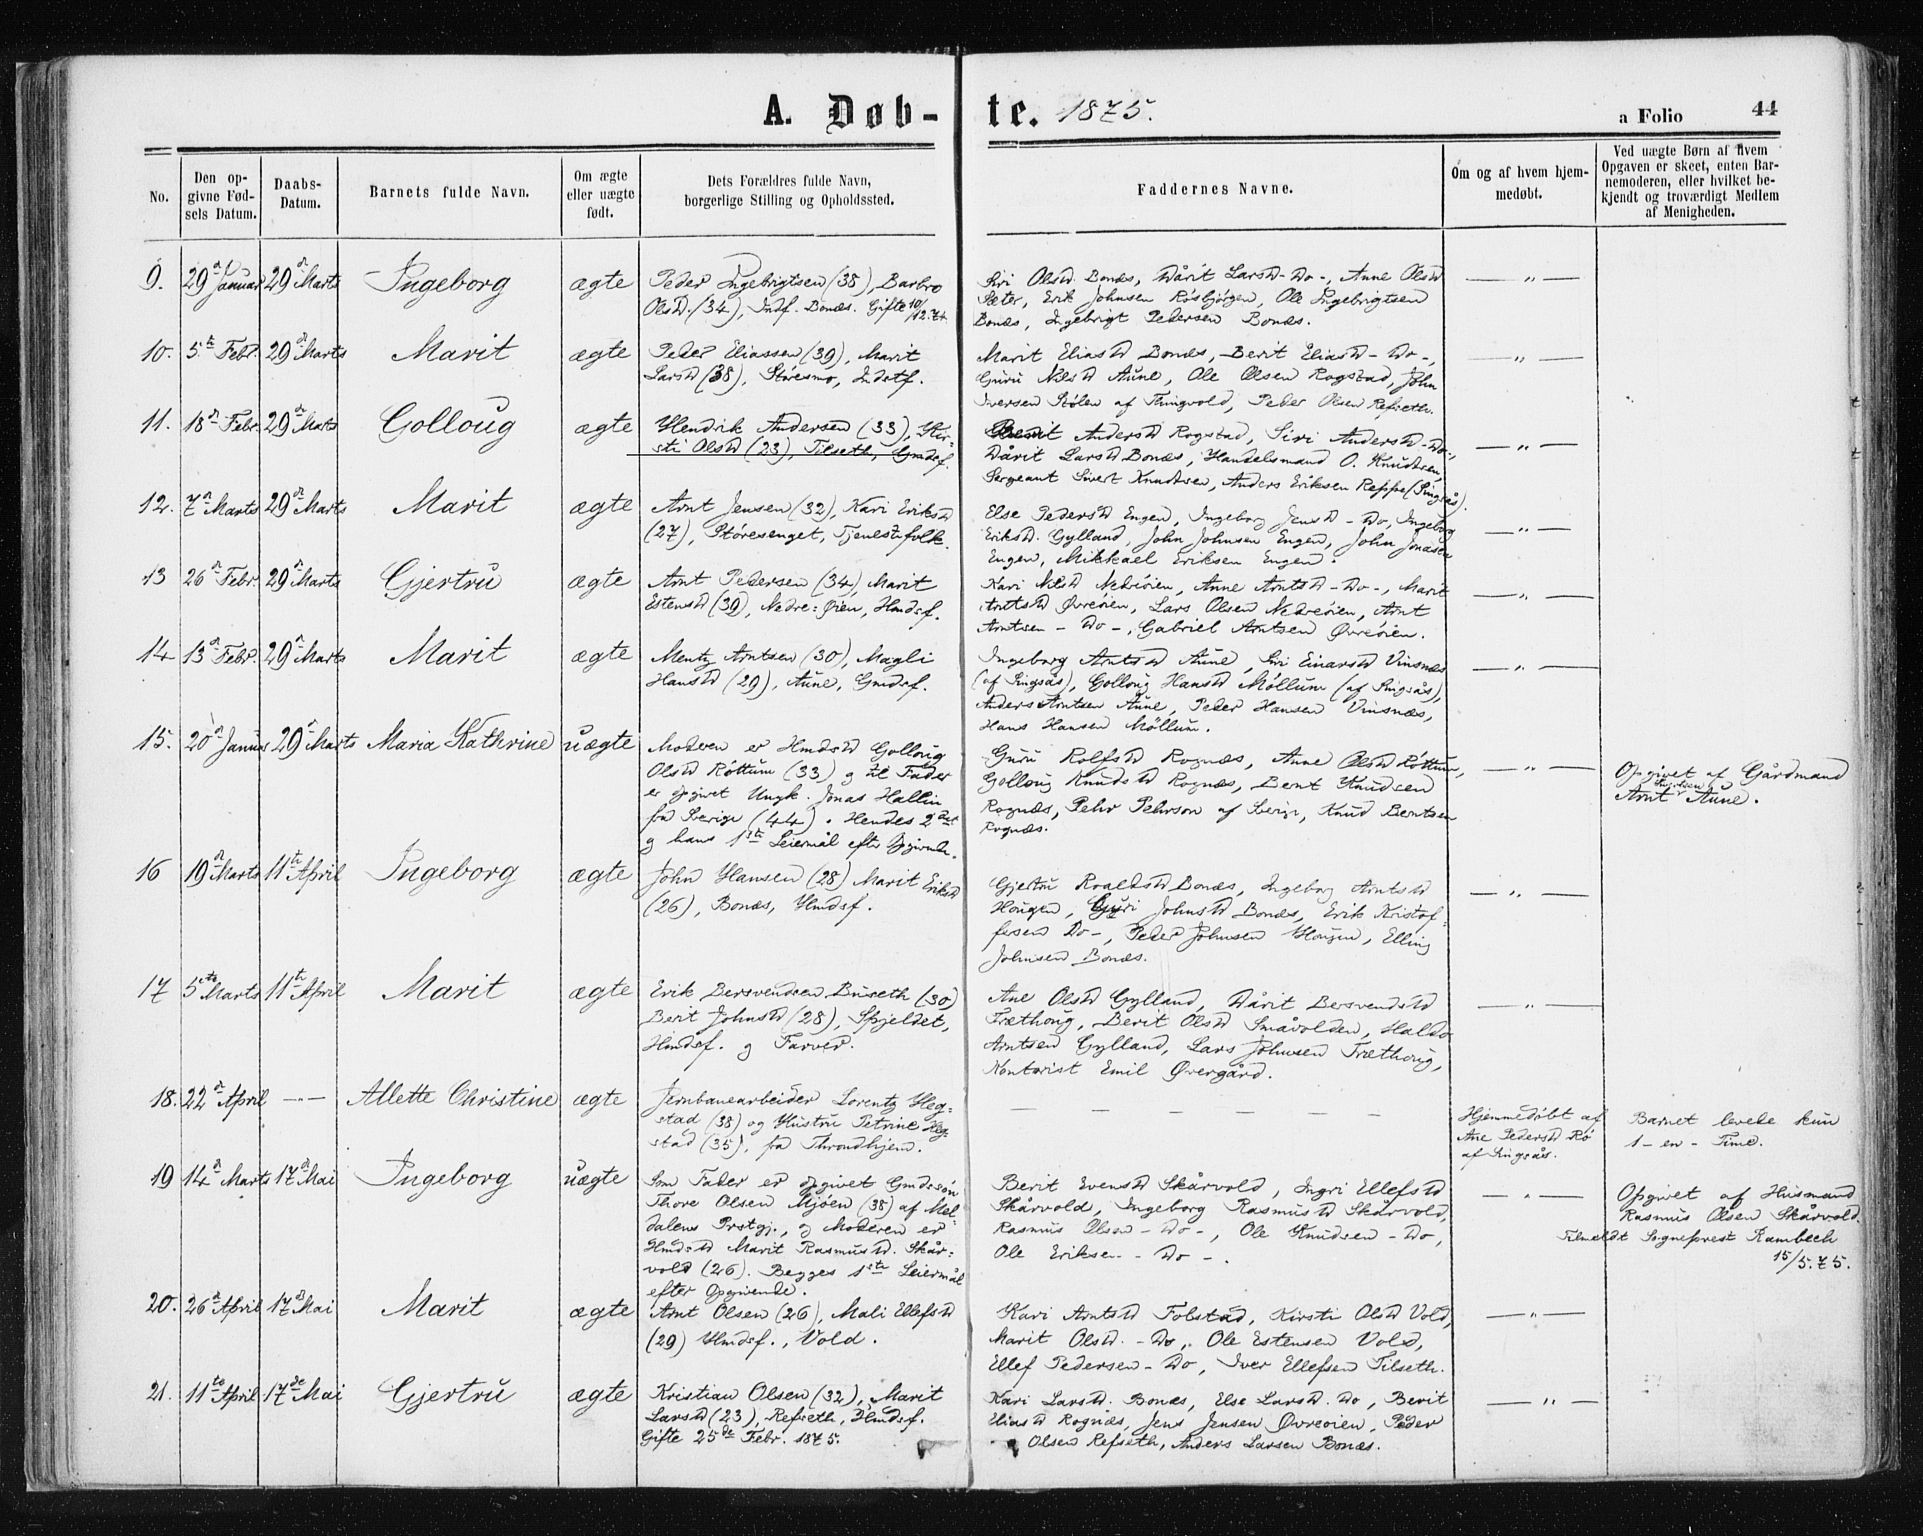 A. Døb-te. 1875.
a Folio 44
No.
Den op-
givne Fød-
sels Datum.
Daabs-
Datum.
Barnets fulde Navn.
Om ægte
eller uægte
født.
Dets Forældres fulde Navn,
borgerlige Stilling og Opholdssted.
Faddernes Navne.
Om og af hvem hjem-
medøbt.
Ved uægte Børn af hvem
Opgaven er skeet, enten Bar-
nemoderen, eller hvilket be-
kjendt og troværdigt Medlem
af Menigheden.
9. 29 Januar 29 Marts Ingeborg ægte
Peder Ingebrigtsen (38), Barbro
Olsd. (34), Indf. Bonæs. Gifte 10/12.74.
Siri Olsd. Bonæs, Dårit Larsd - Do -, Anne Olsd
Sæter, Erik Johnsen Røsbjørgen, Ole Ingebrigtsen
Bonæs, Ingebrigt Pedersen Bonæs.
— „ —
10. 5te Febr. 29 Marts Marit ægte
Peder Eliassen (39), Marit
Larsd (38), Støresmo, Indstf.
Marit Eliasd Bonæs, Berit Eliasd - Do -,
Guru Nilsd Aune, Ole Olsen Rogstad, John
Iversen Stølen af Thingvold, Peder Olsen Refseth.
— „ —
11. 18de Febr. 29 Marts Golloug ægte
Hendrik Andersen (33), Kir-
sti Olsd (23), Tilseth, Gmdsf.
Berit Andersd Rogstad, Siri Andersd - Do -,
Dårit Larsd Bonæs, Handelsmand O. Knudtsen,
Sergeant Sivert Knudtsen, Anders Eriksen Reppe (Singsås).
— „ —
12. 7 Marts 29 Marts Marit ægte
Arnt Jensen (32), Kari Eriksd
(27), Støresenget, Tjenestfolk.
Else Pedersd Engen, Ingeborg Jensd - Do, Ingeborg
Eriksd. Gylland, John Johnsen Engen, John Jonasen
Engen, Mikkael Eriksen Engen.
— „ —
13 26 Febr. 29 Marts Gjertru ægte
Arnt Pedersen (34), Marit
Estensd (39), Nedre-Øien, Hmdsf.
Kari Nilsd Nedreøien, Anne Arntsd - Do -, Marit
Arntsd Øvreøien, Lars Olsen Nedreøien, Arnt
Arntsen - Do -, Gabriel Arntsen Øvreøien.
— „ —
14 13 Febr. 29 Marts Marit ægte
Mentz Arntsen (30), Magli
Hansd (29), Aune, Gmdsf.
Ingeborg Arntsd Aune, Siri Einarsd Vinsnæs
(af Singsås), Golloug Hansd Møllum (af Singsås),
Anders Arntsen Aune, Peder Hansen Vinsnæs,
Hans Hansen Møllum.
— „ —
15. 20 Januar 29 Marts Maria Kathrine uægte
Moderen er Hmdsd Golloug
Olsd Røttum (33) og til Fader
er opgivet Ungk. Jonas Hallin
fra Sverige (44). Hendes 2det
og hans 1ste Leiermål efter Opgivende.
Guru Rolfsd Rognæs, Anne Olsd Røttum,
Golloug Knudsd Rognæs, Bernt Knudsen
Rognæs, Pehr Pehrson af Sverige, Knud Berntsen
Rognæs.
— „ —
Opgivet af Gårdmand
Arnt Aune.
16 19 Marts 11te April Ingeborg ægte
John Hansen (28) Marit Eriksd
(26), Bonæs, Hmdsf.
Gjertru Roaldsd Bonæs, Ingeborg Arntsd
Hougen, Guri Johnsd Bonæs, Erik Kristof-
fersen Do -, Peder Johnsen Hougen, Elling
Johnsen Bonæs.
— „ —
17 5te Marts 11te April Marit ægte
Erik Bersvendsen Buseth (30)
Berit Johnsd (28), Spjeldet,
Hmdsf. og Farver.
Ane Olsd Gylland, Dårit Bersvendsd
Træthoug, Berit Olsd Småvolden, Haldo
Arntsen Gylland, Lars Johnsen Træthoug,
Kontorist Emil Øvergård.
— „ —
18. 22 April — — Allette Christine ægte
Jernbanearbeider Lorentz Heg-
stad (38) og Hustru Petrine Heg-
stad (35), fra Throndhjem.
— — — — — — —
Hjemmedøbt af
Ane Pedersd Rø
af Singsås.
Barnet levede kun
1 - en - Time.
19 14 Marts 17 Mai Ingeborg uægte
Som Fader er opgivet Gmdssøn
Thore Olsen Mjøen (38) af Mel-
dalens Prstgj., og Moderen er
Hmdsd Marit Rasmusd. Skår-
vold (26). Begges 1ste Leiermål
efter Opgivende.
Berit Evensd Skårvold, Ingri Ellefsd
Skårvold, Ingeborg Rasmusd Skårvold,
Rasmus Olsen - Do -, Ole Knudsen - Do,
Ole Eriksen - Do -.
— „ —
Opgivet af Husmand
Rasmus Olsen Skårvold.
Tilmeldt Sogneprest Rambech
15/5.75.
20. 26 April 17 Mai Marit ægte
Arnt Olsen (26), Mali Ellefsd
(29) Hmdsf., Vold.
Kari Arntsd Folstad, Kirsti Olsd Vold,
Marit Olsd. - Do, Ole Estensen Vold,
Ellef Pedersen - Do, Iver Ellefsen Tilseth.
— „ —
21. 11te April 17de Mai Gjertru ægte
Kristian Olsen (32), Marit
Larsd (23), Refseth, Hmdsf.
Gifte 25de Febr. 1875.
Kari Larsd. Bonæs, Else Larsd. Do, Berit
Eliasd Rognæs, Jens Jensen Øvreøien, Peder
Olsen Refseth, Anders Larsen Bonæs.
— „ —